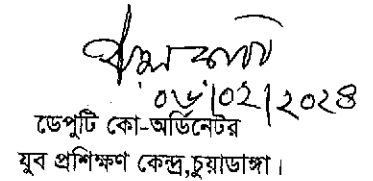 ০৬/০২/২০২৪
ডেপুটি কো-অর্ডিনেটর
যুব প্রশিক্ষণ কেন্দ্র,চুয়াডাঙ্গা।